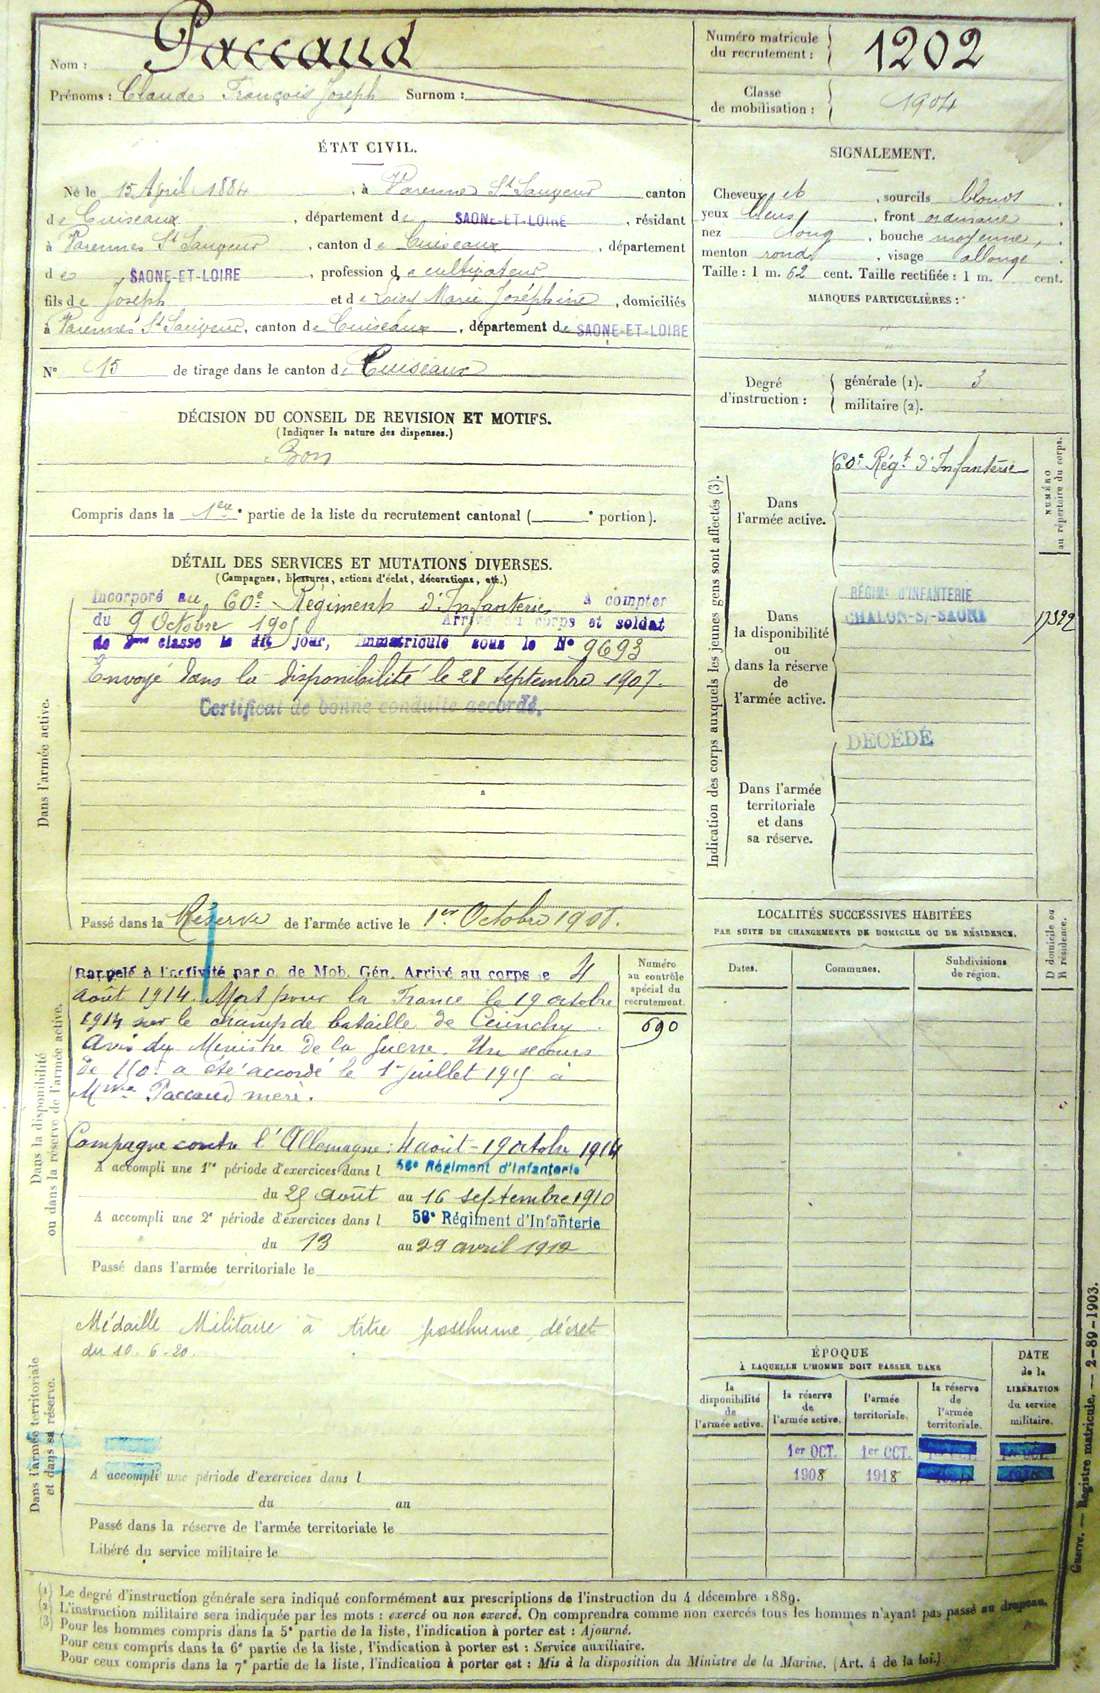 Nom : Paccaud
Prénoms : Claude François Joseph Surnom :
Numéro matricule
du recrutement : 1202
Classe
de mobilisation : 1904
ÉTAT CIVIL.
Né le 15 Avril 1884, à Varennes St Sauveur canton
de Cuiseaux, département de SAONE-ET-LOIRE, résidant
à Varennes St Sauveur, canton de Cuiseaux, département
de SAONE-ET-LOIRE, profession de cultivateur
fils de Joseph et de Marie Joséphine, domiciliés
à Varennes St Sauveur, canton de Cuiseaux, département de SAONE-ET-LOIRE
N° 15 de tirage dans le canton de Cuiseaux
SIGNALEMENT.
Cheveux et, sourcils blonds,
yeux bleus, front ordinaire,
nez long, bouche moyenne,
menton rond, visage allongé.
Taille : 1 m. 62 cent. Taille rectifiée : 1 m. cent.
MARQUES PARTICULIÈRES :
Degré
d'instruction :
générale (1). 3
militaire (2).
DÉCISION DU CONSEIL DE REVISION ET MOTIFS.
(Indiquer la nature des dispenses.)
Bon
Compris dans la 1ere partie de la liste du recrutement cantonal ( e portion).
DÉTAIL DES SERVICES ET MUTATIONS DIVERSES.
(Campagnes, blessures, actions d'éclat, décorations, etc.)
Dans l'armée active.
Incorporé au 60e Régiment d'Infanterie à compter
du 9 Octobre 1905 Arrivé au corps et soldat
de 2me classe le dit jour, immatriculé sous le N° 9693
Envoyé dans la disponibilité le 28 septembre 1907.
Certificat de bonne conduite accordé.
Passé dans la Réserve de l'armée active le 1er Octobre 1908.
Dans la disponibilité
ou dans la réserve de l'armée active.
Rappelé à l'activité par o. de Mob. Gén. Arrivé au corps le 4
août 1914. Mort pour la France le 19 octobre
1914 sur le champ de bataille de Cuinchy.
Avis du Ministre de la Guerre. Un secours
de 150f a été accordé le 1er juillet 1915 à
Mme Paccaud mère.
Campagne contre l'Allemagne : 4 août - 19 octobre 1914
A accompli une 1re période d'exercices dans l 56e Régiment d'Infanterie
du 25 août au 16 septembre 1910
A accompli une 2e période d'exercices dans l 56e Régiment d'Infanterie
du 13 au 29 avril 1912
Passé dans l'armée territoriale le
Numéro
au contrôle
spécial du
recrutement.
690
Dans l'armée territoriale
et dans sa réserve.
Médaille Militaire à titre posthume, décret
du 10-6-20.
A accompli une période d'exercices dans l
du au
Passé dans la réserve de l'armée territoriale le
Libéré du service militaire le
Indication des corps auxquels les jeunes gens sont affectés (3).
NUMÉRO
au répertoire du corps.
Dans
l'armée active.
60e Régt d'Infanterie
Dans
la disponibilité
ou
dans la réserve
de
l'armée active.
RÉGIMt D'INFANTERIE
CHALON-S/-SAONE
Dans l'armée
territoriale
et dans
sa réserve.
DÉCÉDÉ
LOCALITÉS SUCCESSIVES HABITÉES
PAR SUITE DE CHANGEMENTS DE DOMICILE OU DE RÉSIDENCE.
Dates. Communes. Subdivisions
de région.
D domicile ou
R résidence.
ÉPOQUE
À LAQUELLE L'HOMME DOIT PASSER DANS
la
disponibilité
de
l'armée active.
la réserve
de
l'armée active.
l'armée
territoriale.
la réserve
de
l'armée
territoriale.
DATE
de la
LIBÉRATION
du service
militaire.
1er OCT. 1er OCT.
1908 1918
Guerre. — Registre matricule. — 2-89-1903.
(1) Le degré d'instruction générale sera indiqué conformément aux prescriptions de l'instruction du 4 décembre 1889.
(2) L'instruction militaire sera indiquée par les mots : exercé ou non exercé. On comprendra comme non exercés tous les hommes n'ayant pas passé au drapeau.
(3) Pour les hommes compris dans la 5e partie de la liste, l'indication à porter est : Ajourné.
Pour ceux compris dans la 6e partie de la liste, l'indication à porter est : Service auxiliaire.
Pour ceux compris dans la 7e partie de la liste, l'indication à porter est : Mis à la disposition du Ministre de la Marine. (Art. 4 de la loi.)